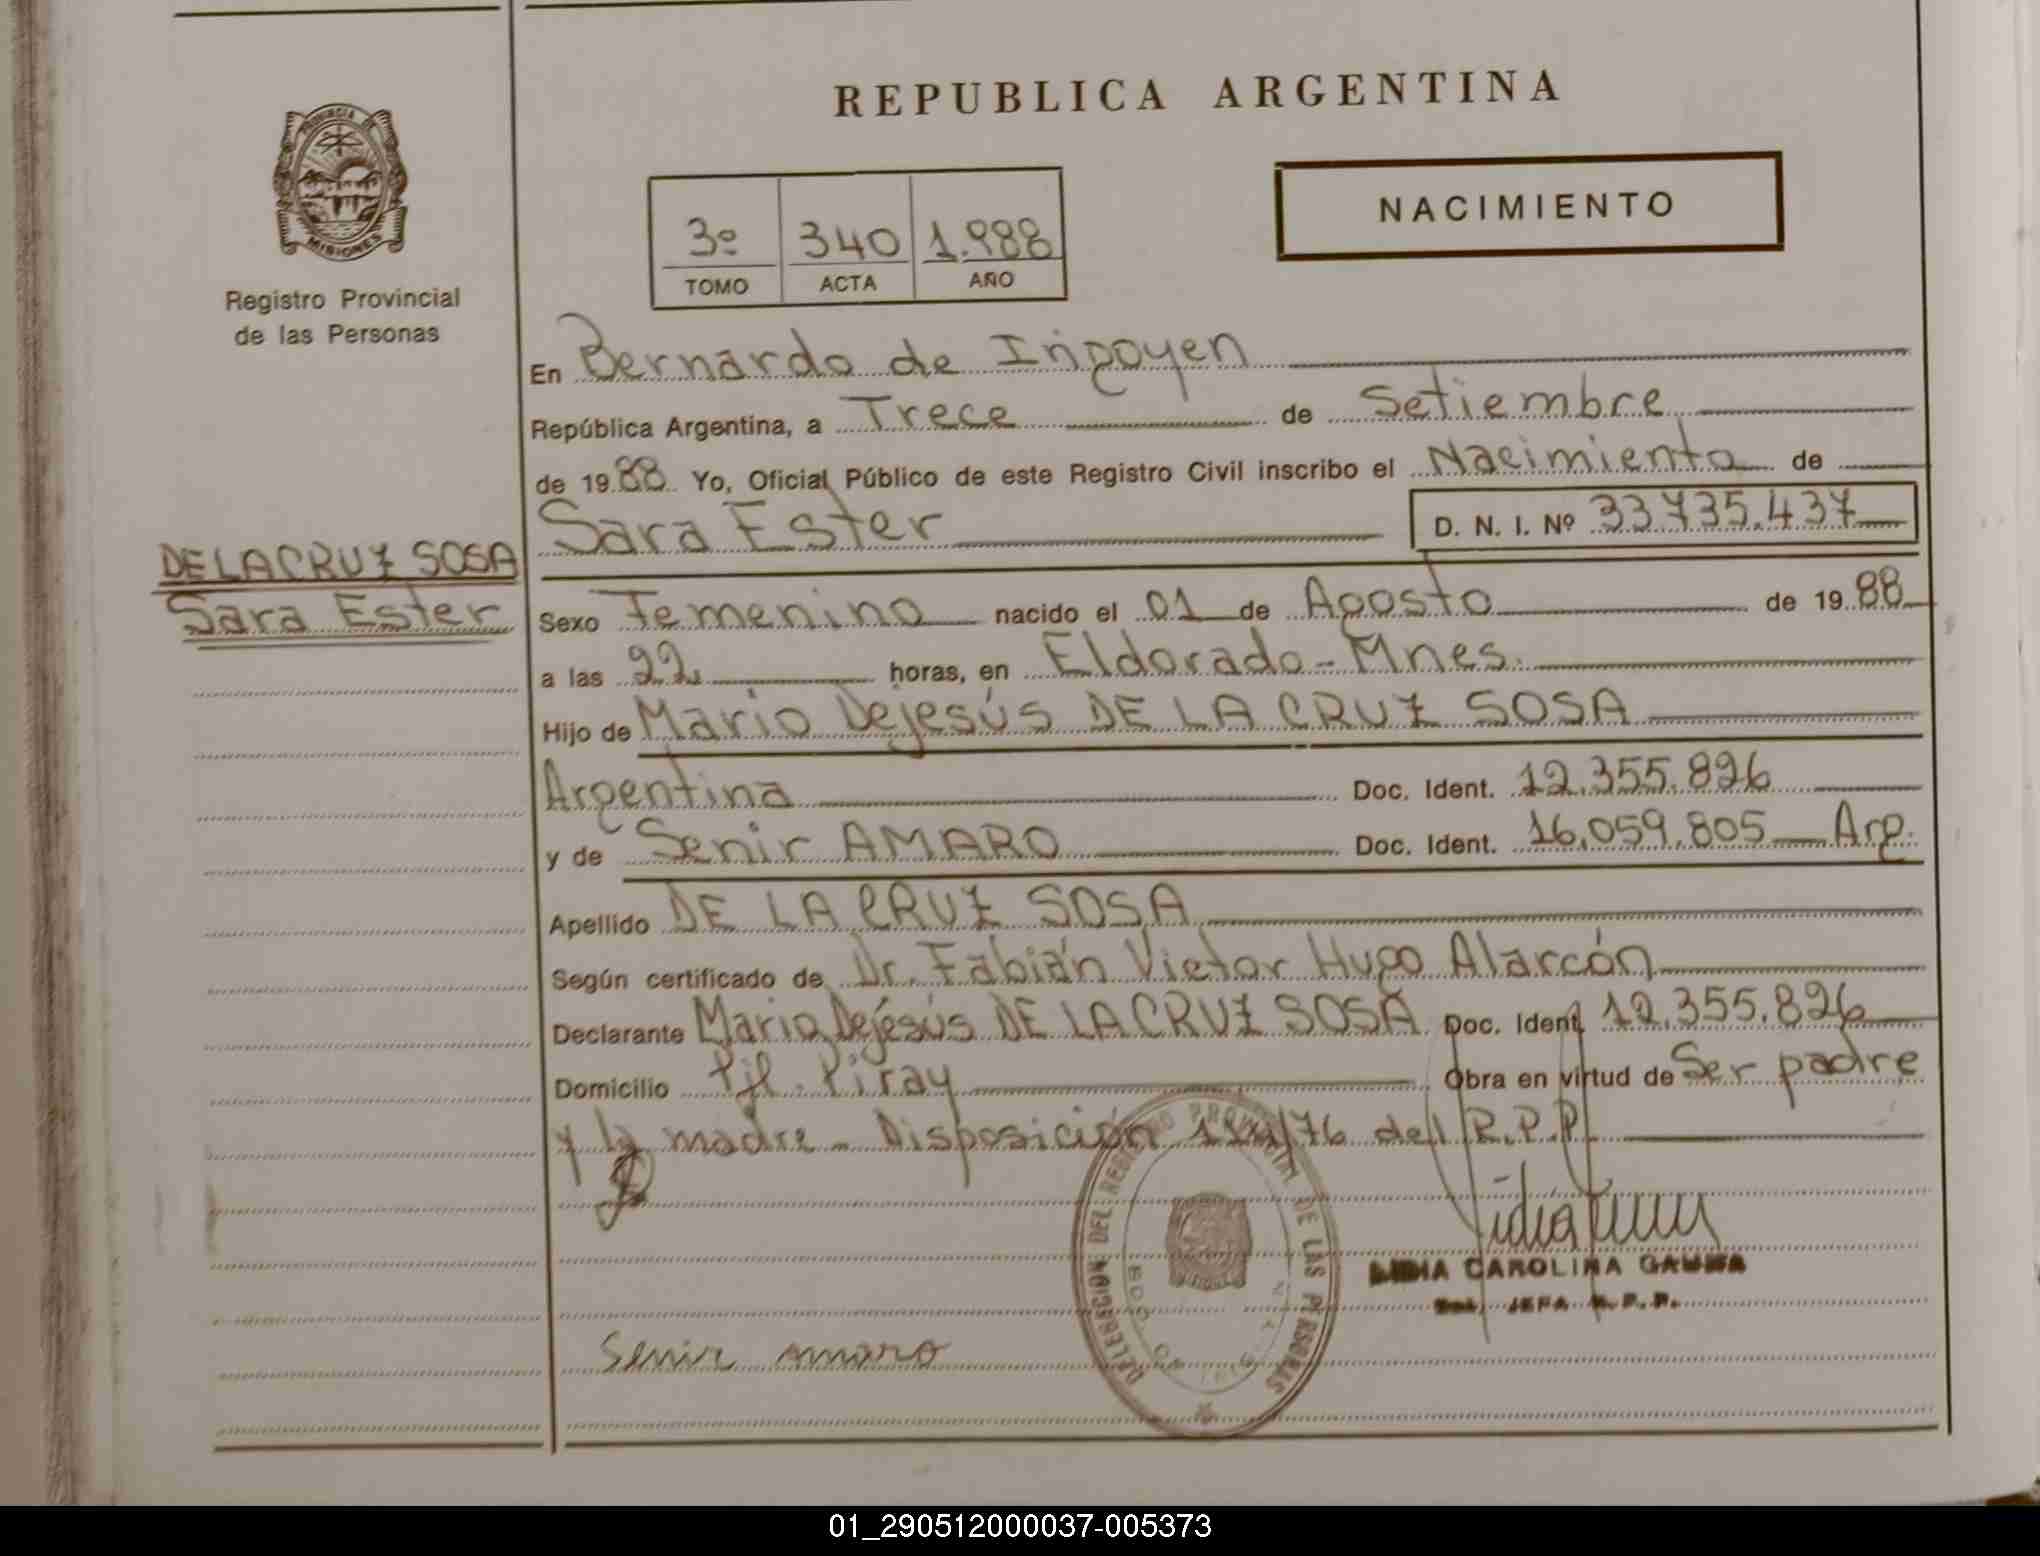 REPUBLICA ARGENTINA
PROVINCIA DE
MISIONES
Registro Provincial
de las Personas
3º 340 1.988
TOMO ACTA AÑO
NACIMIENTO
En Bernardo de Irigoyen
República Argentina, a Trece de Setiembre
de 1988 Yo, Oficial Público de este Registro Civil inscribo el Nacimiento de
Sara Ester D. N. I. Nº 33735.437
DE LA CRUZ SOSA
Sara Ester
Sexo Femenino nacido el 01 de Agosto de 1988
a las 22 horas, en Eldorado - Mnes.
Hijo de Mario Dejesús DE LA CRUZ SOSA
Argentina Doc. Ident. 12.355.826
y de Senir AMARO Doc. Ident. 16.059.805 Arg.
Apellido DE LA CRUZ SOSA
Según certificado de Dr. Fabián Victor Hugo Alarcón
Declarante Mario Dejésús DE LA CRUZ SOSA Doc. Ident 12.355.826
Domicilio Pjl. Piray Obra en virtud de Ser padre
y la madre - Disposición /76 del R.P.P.
DELEGACION DEL REGISTRO PROVINCIAL DE LAS PERSONAS
LIDIA CAROLINA
JEFA R.P.P.
Senir amaro
01_290512000037-005373